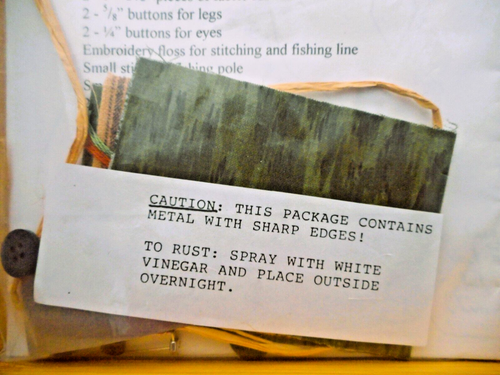 2 - 5/8" buttons for legs
2 - ¼" buttons for eyes
Embroidery floss for stitching and fishing line
Small pole
CAUTION: THIS PACKAGE CONTAINS
METAL WITH SHARP EDGES!
TO RUST: SPRAY WITH WHITE
VINEGAR AND PLACE OUTSIDE
OVERNIGHT.